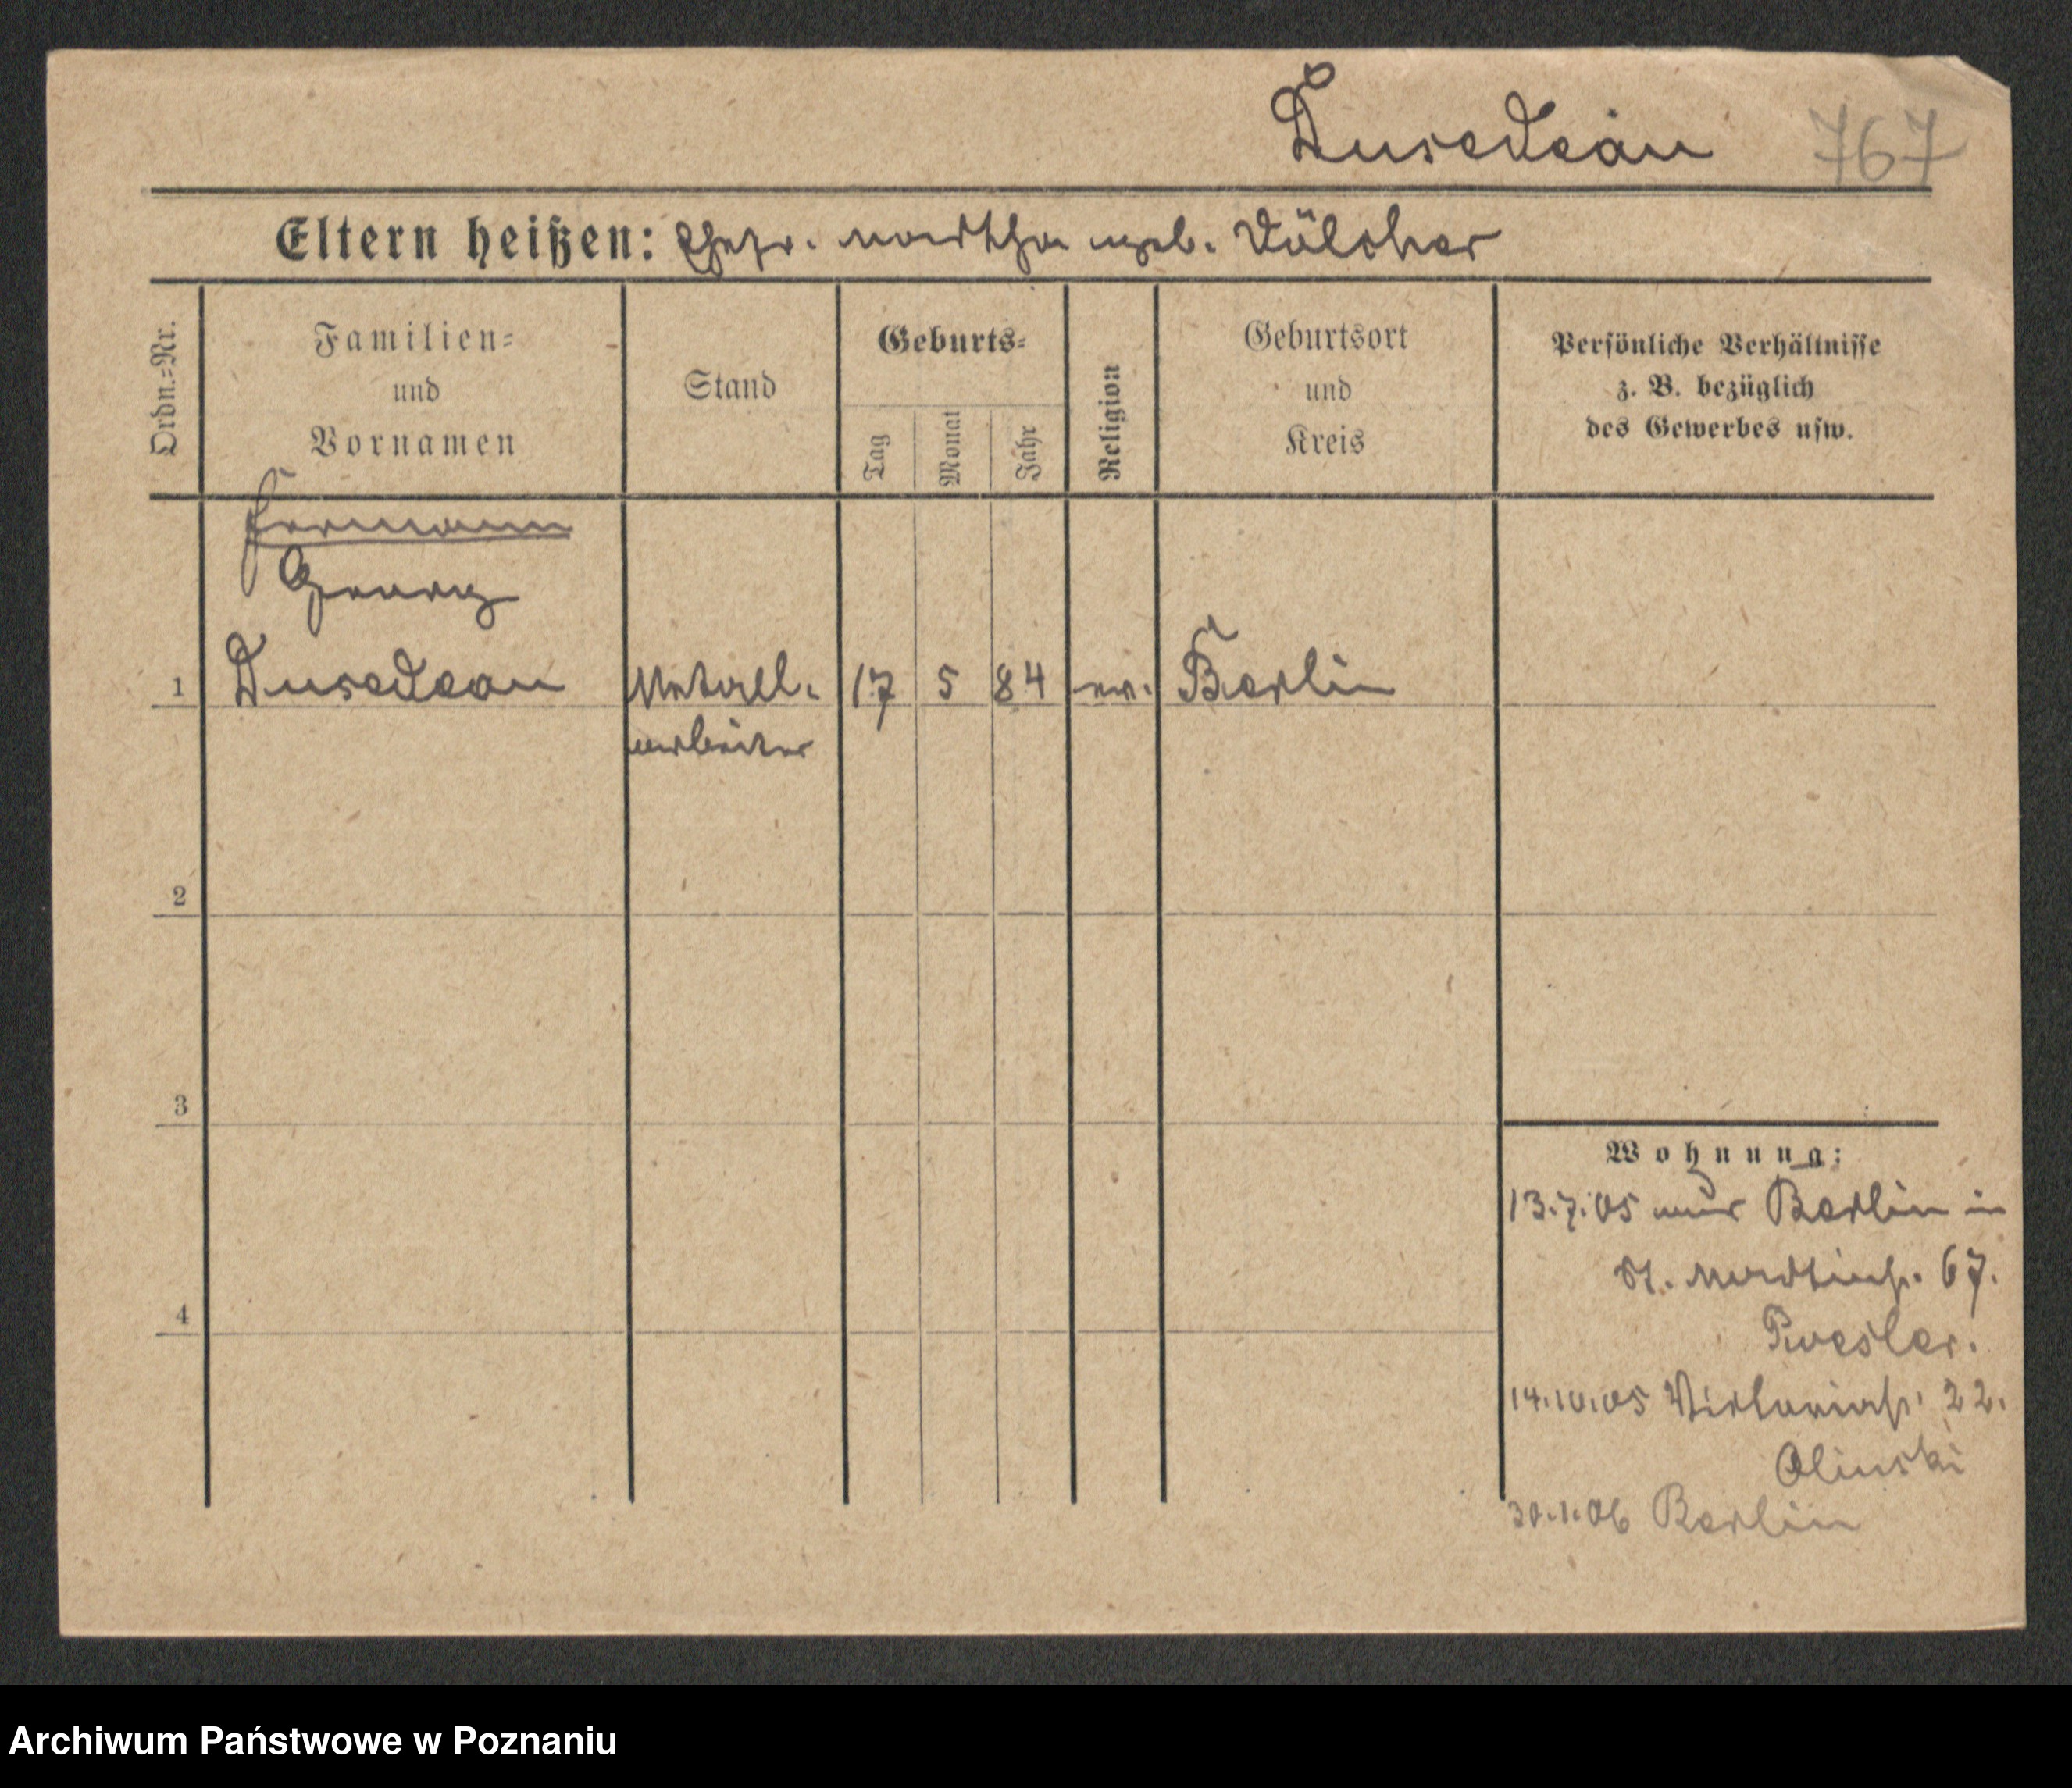 Dusedeau 767
Eltern heißen: Ehefr. Martha geb. Völcher
Ordn.=Nr.
Familien=
und
Vornamen
Stand
Geburts=
Tag
Monat
Jahr
Religion
Geburtsort
und
Kreis
Persönliche Verhältnisse
z. B. bezüglich
des Gewerbes usw.
Hermann
Georg
1 Dusedeau Metall- 17 5 84 ev. Berlin
arbeiter
2
3
4
Wohnung:
13.7.05 aus Berlin in
St. Martinstr. 67.
14.10.05 Viktoriastr. 22.
Olinski
30.1.06 Berlin
Archiwum Państwowe w Poznaniu